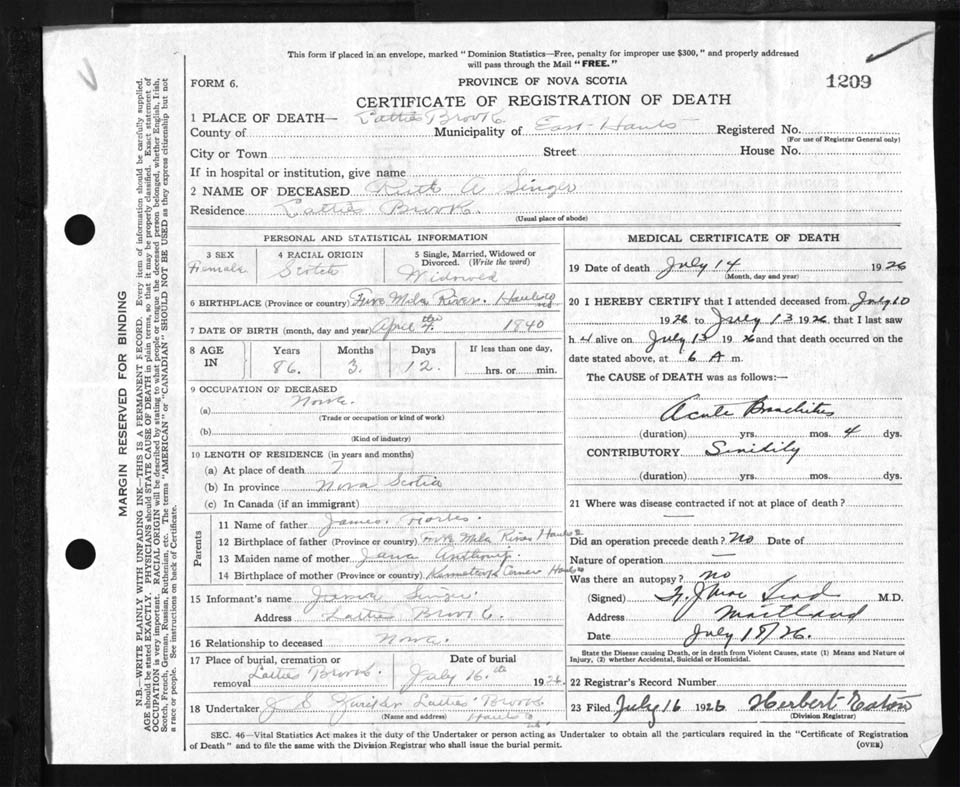 This form if placed in an envelope, marked "Dominion Statistics—Free, penalty for improper use $300," and properly addressed
will pass through the Mail "FREE."
FORM 6.
PROVINCE OF NOVA SCOTIA
1209
CERTIFICATE OF REGISTRATION OF DEATH
1 PLACE OF DEATH— Latties Brook
County of Municipality of East Hants Registered No.
(For use of Registrar General only)
City or Town Street House No.
If in hospital or institution, give name
2 NAME OF DECEASED Ruth A Singer
Residence Latties Brook.
(Usual place of abode)
PERSONAL AND STATISTICAL INFORMATION
3 SEX
Female
4 RACIAL ORIGIN
Scotch
5 Single, Married, Widowed or
Divorced. (Write the word)
Widowed
6 BIRTHPLACE (Province or country) Five Mile River. Hants Co
7 DATE OF BIRTH (month, day and year) April 1840
8 AGE
IN
Years
86.
Months
3.
Days
12.
If less than one day,
hrs. or min.
9 OCCUPATION OF DECEASED
(a) None.
(Trade or occupation or kind of work)
(b)
(Kind of industry)
10 LENGTH OF RESIDENCE (in years and months)
(a) At place of death 7
(b) In province Nova Scotia
(c) In Canada (if an immigrant)
Parents
11 Name of father James.
12 Birthplace of father (Province or country) Five Mile River Hants
13 Maiden name of mother Jane Anthony
14 Birthplace of mother (Province or country) Corner Hants
15 Informant's name Singer
Address Latties Brook.
16 Relationship to deceased None.
17 Place of burial, cremation or
removal Latties Brook.
Date of burial
July 16.th 1926.
18 Undertaker J S Latties Brook
(Name and address) Hants Co
MEDICAL CERTIFICATE OF DEATH
19 Date of death July 14 1926
(Month, day and year)
20 I HEREBY CERTIFY that I attended deceased from July 10
1926 to July 13 1926, that I last saw
h alive on July 13 1926 and that death occurred on the
date stated above, at 6 A m.
The CAUSE of DEATH was as follows:—
Acute Bronchitis
(duration) yrs. mos. 4 dys.
CONTRIBUTORY Senility
(duration) yrs. mos. dys.
21 Where was disease contracted if not at place of death?
Did an operation precede death? No Date of
Nature of operation —
Was there an autopsy? no
(Signed) M.D.
Address Maitland
Date July 18/26.
State the Disease causing Death, or in death from Violent Causes, state (1) Means and Nature of
Injury, (2) whether Accidental, Suicidal or Homicidal.
22 Registrar's Record Number
23 Filed July 16 1926 Herbert Eaton
(Division Registrar)
SEC. 46—Vital Statistics Act makes it the duty of the Undertaker or person acting as Undertaker to obtain all the particulars required in the "Certificate of Registration
of Death" and to file the same with the Division Registrar who shall issue the burial permit.
(OVER)
MARGIN RESERVED FOR BINDING
N.B.—WRITE PLAINLY WITH UNFADING INK—THIS IS A PERMANENT RECORD. Every item of information should be carefully supplied.
AGE should be stated EXACTLY. PHYSICIANS should STATE CAUSE OF DEATH in plain terms, so that it may be properly classified. Exact statement of
OCCUPATION is very important. RACIAL ORIGIN will be described by stating to what people or tongue the deceased person belonged, whether English, Irish,
Scotch, French, German, Russian, Ruthenian, etc. The terms "AMERICAN" or "CANADIAN" SHOULD NOT BE USED as they express citizenship but not
a race or people. See instructions on back of Certificate.